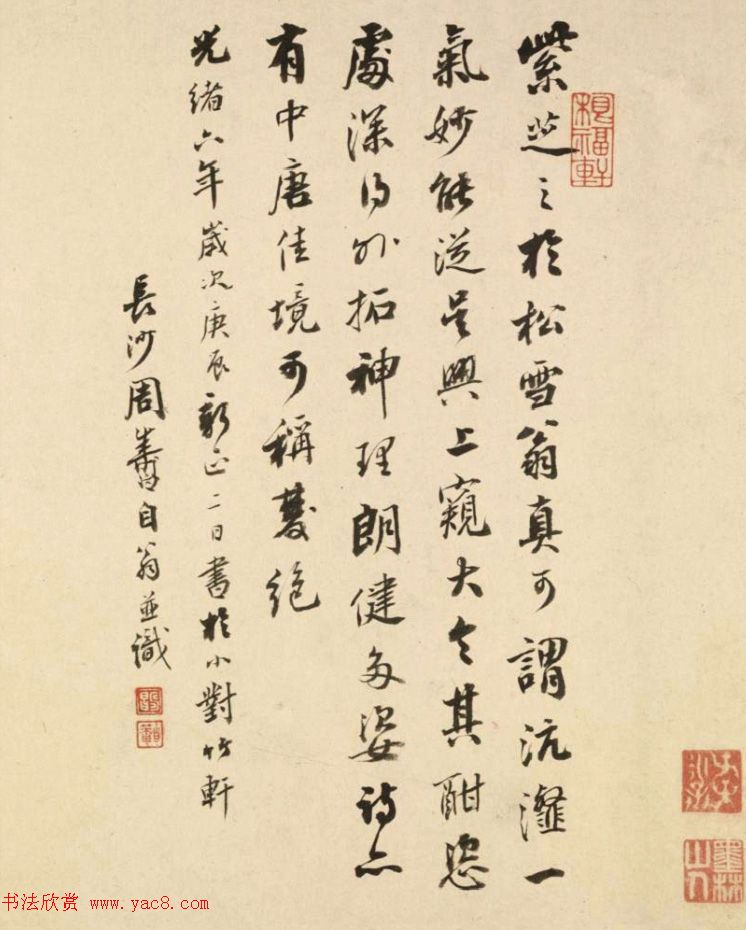 紫芝之於松雪翁真可謂沆瀣一
氣妙能從吳興上窺大令其酣恣
處深得外拓神理朗健多姿詩亦
有中唐佳境可稱雙絕
光緒六年歲次庚辰新正二日書於小對竹軒
長沙周壽昌自翁並識
墨林山人
书法欣赏 www.yac8.com